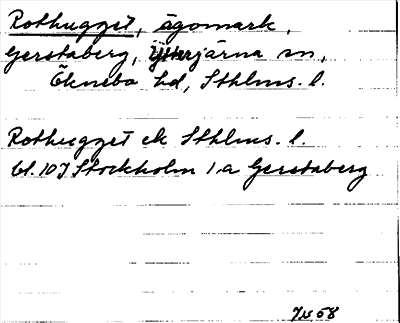 Rothugget, ägomark,
Gerstaberg, Ytterjärna sn,
Öknebo hd, Sthlms. l.
Rothugget ek Sthlms. l.
bl. 107 Stockholm 1 a Gerstaberg
Ju 58